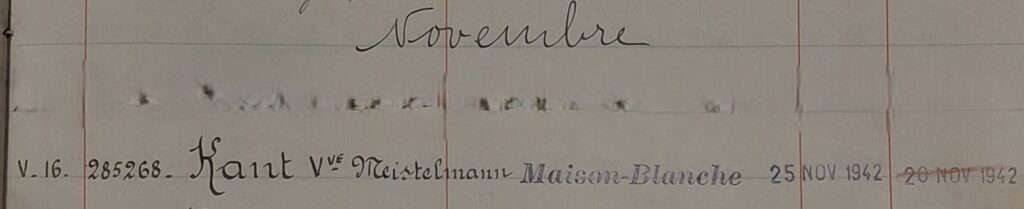 Novembre
V_16. 285268_ Kant Vve Meistelmann Maison-Blanche 25 NOV 1942 20 NOV 1942